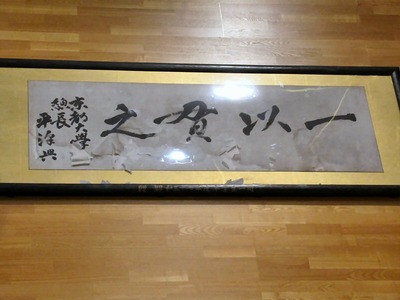 一以貫之
京都大學
總長
平澤興